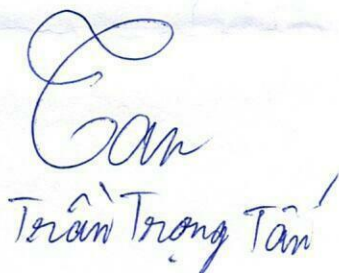 Tan
Trần Trọng Tấn